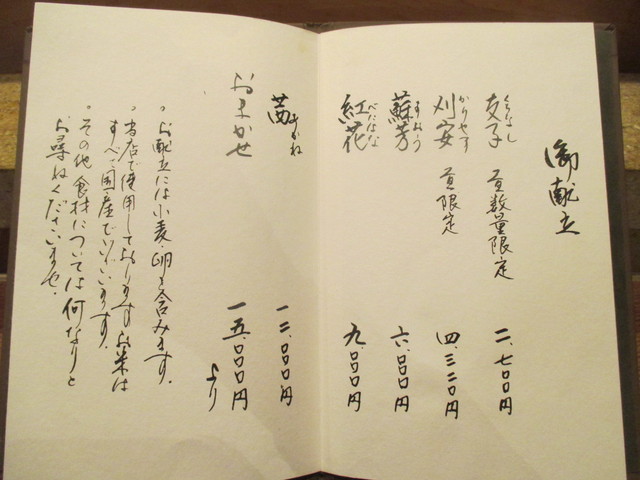 御献立
くちなし
支子 昼数量限定 二、七〇〇円
かりやす
刈安 昼限定 四、三二〇円
すおう
蘇芳 六、〇〇〇円
べにばな
紅花 九、〇〇〇円
あかね
茜 一二、〇〇〇円
おまかせ 一五、〇〇〇円より
。お献立には小麦・卵を含みます。
。当店で使用しておりますお米は
すべて国産でございます。
。その他食材については何なりと
お尋ねくださいませ。